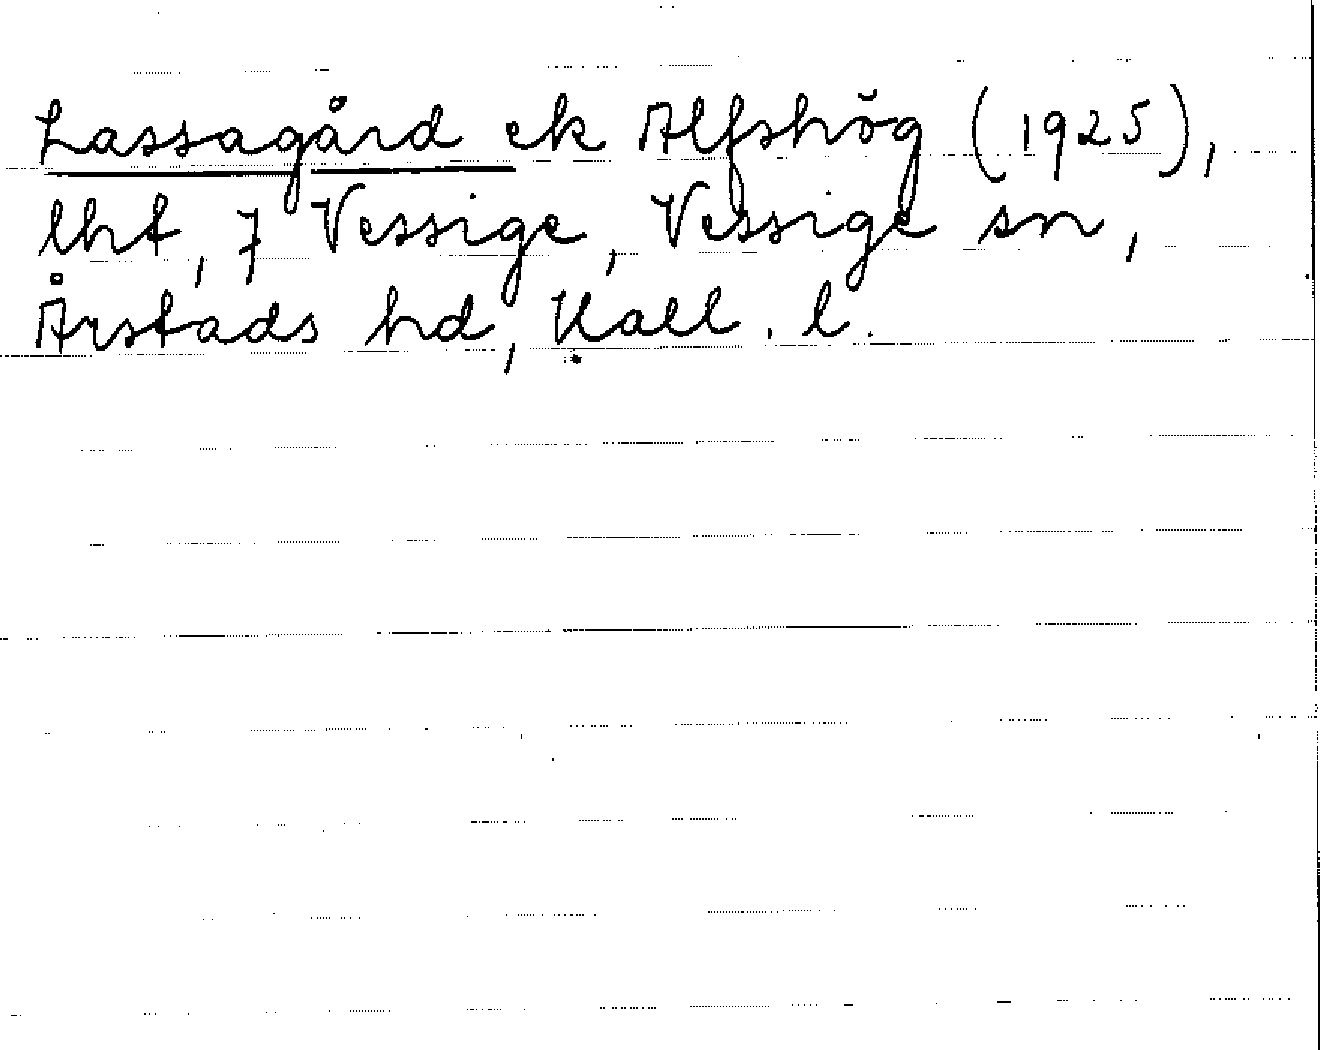 Lassagård ek Alfshög (1925),
lht, 7 Vessige, Vessige sn,
Årstads hd, Hall. l.